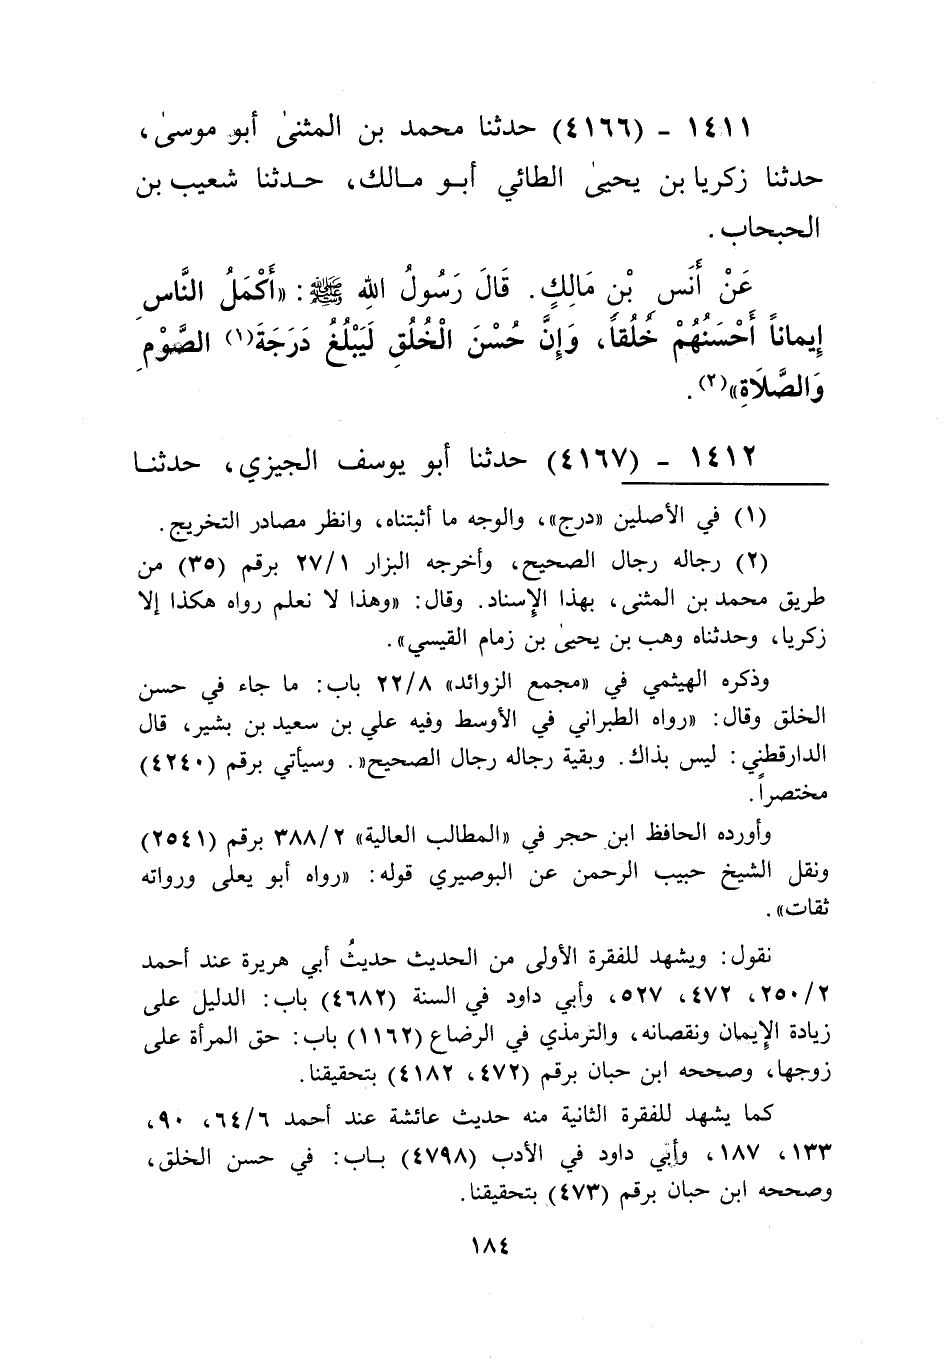 ١٤١١ - (٤١٦٦) حدثنا محمد بن المثنىٰ أبو موسىٰ،
حدثنا زكريا بن يحيىٰ الطائي أبو مالك، حدثنا شعيب بن
الحبحاب.
عَنْ أَنَسِ بْنِ مَالِكٍ. قَالَ رَسُولُ اللهِ ﷺ: «أَكْمَلُ النَّاسِ
إِيماناً أَحْسَنُهُمْ خُلُقاً، وَإِنَّ حُسْنَ الْخُلُقِ لَيَبْلُغُ دَرَجَةَ(١) الصَّوْمِ
وَالصَّلَاةِ»(٢).
١٤١٢ - (٤١٦٧) حدثنا أبو يوسف الجيزي، حدثنا
(١) في الأصلين «درج»، والوجه ما أثبتناه، وانظر مصادر التخريج.
(٢) رجاله رجال الصحيح، وأخرجه البزار ٢٧/١ برقم (٣٥) من
طريق محمد بن المثنى، بهذا الإسناد. وقال: «وهذا لا نعلم رواه هكذا إلا
زكريا، وحدثناه وهب بن يحيىٰ بن زمام القيسي».
وذكره الهيثمي في «مجمع الزوائد» ٢٢/٨ باب: ما جاء في حسن
الخلق وقال: «رواه الطبراني في الأوسط وفيه علي بن سعيد بن بشير، قال
الدارقطني: ليس بذاك. وبقية رجاله رجال الصحيح». وسيأتي برقم (٤٢٤٠)
مختصراً.
وأورده الحافظ ابن حجر في «المطالب العالية» ٣٨٨/٢ برقم (٢٥٤١)
ونقل الشيخ حبيب الرحمن عن البوصيري قوله: «رواه أبو يعلى ورواته
ثقات».
نقول: ويشهد للفقرة الأولى من الحديث حديثُ أبي هريرة عند أحمد
٢٥٠/٢، ٤٧٢، ٥٢٧، وأبي داود في السنة (٤٦٨٢) باب: الدليل على
زيادة الإيمان ونقصانه، والترمذي في الرضاع (١١٦٢) باب: حق المرأة على
زوجها، وصححه ابن حبان برقم (٤٧٢، ٤١٨٢) بتحقيقنا.
كما يشهد للفقرة الثانية منه حديث عائشة عند أحمد ٦٤/٦، ٩٠،
١٣٣، ١٨٧، وأبي داود في الأدب (٤٧٩٨) باب: في حسن الخلق،
وصححه ابن حبان برقم (٤٧٣) بتحقيقنا.
١٨٤